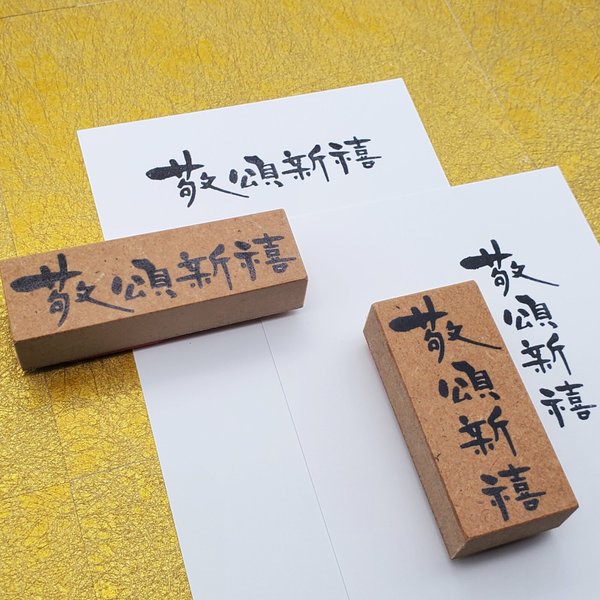 敬頌新禧
敬頌新禧
敬頌新禧
敬頌新禧